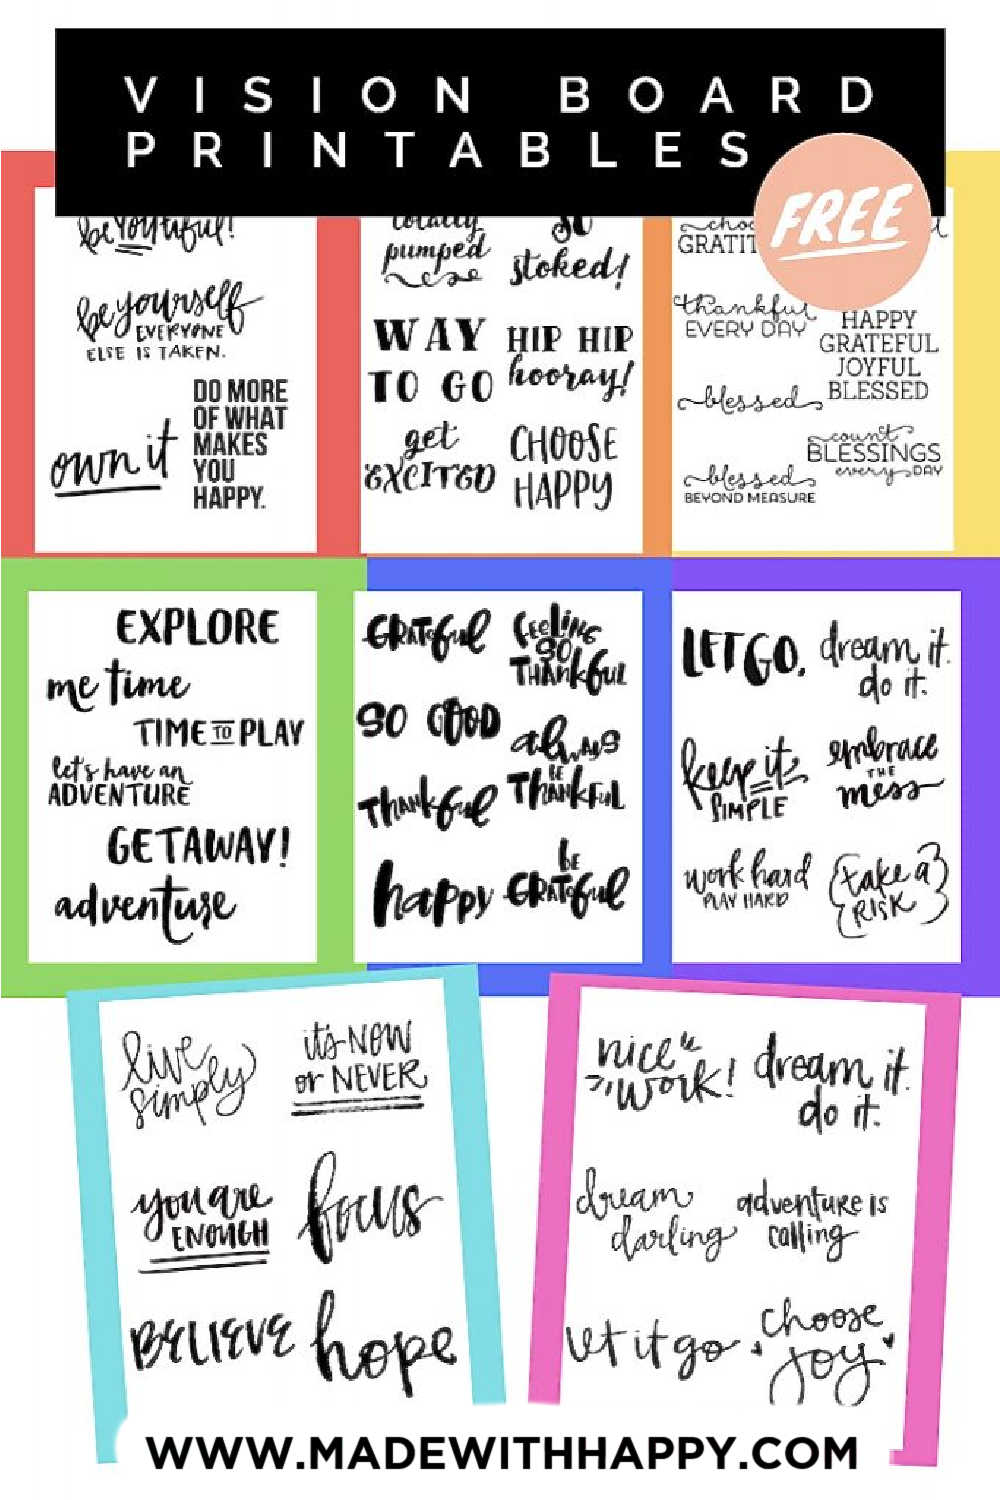 VISION BOARD
PRINTABLES
FREE
be YOUtiful!
be yourself
EVERYONE
ELSE IS TAKEN.
own it
DO MORE
OF WHAT
MAKES
YOU
HAPPY.
totally
pumped
SO
stoked!
WAY
TO GO
HIP HIP
hooray!
get
EXCITED
CHOOSE
HAPPY
thankful
EVERY DAY
blessed
blessed
BEYOND MEASURE
HAPPY
GRATEFUL
JOYFUL
BLESSED
count
BLESSINGS
every DAY
EXPLORE
me time
TIME TO PLAY
let's have an
ADVENTURE
GETAWAY!
adventure
GRATeful
FeeLING
SO
THANkful
SO GOOD
always
BE
THANKFUL
THANkful
happy
BE
GRATeful
LET GO.
dream it.
do it.
keep it
SIMPLE
embrace
THE
mess
work hard
PLAY HARD
{take a}
{RISK}
live
simply
it's NOW
or NEVER
you are
ENOUGH
focus
BELIEVE
hope
nice
work!
dream it.
do it.
dream
darling
adventure is
calling
let it go
choose
joy
WWW.MADEWITHHAPPY.COM